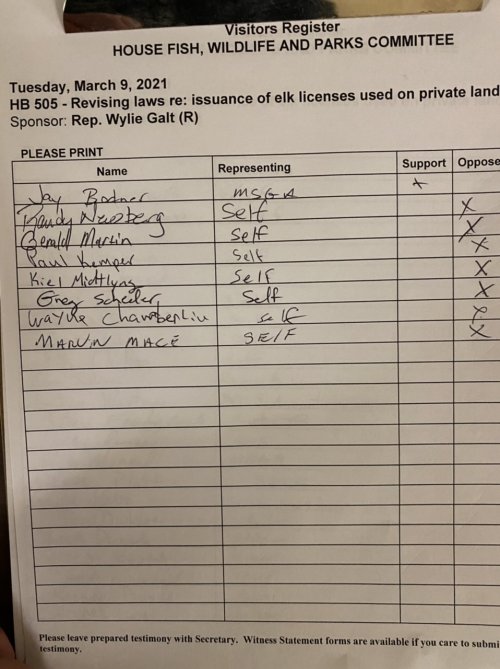 Visitors Register
HOUSE FISH, WILDLIFE AND PARKS COMMITTEE
Tuesday, March 9, 2021
HB 505 - Revising laws re: issuance of elk licenses used on private land
Sponsor: Rep. Wylie Galt (R)
PLEASE PRINT
Name Representing Support Oppose
Jay Bodner MSGA X
Randy Newberg Self X
Gerald Martin Self X
Paul Kemper Self X
Kiel Self X
Greg Self X
Wayne Chamberlin Self X
MARVIN MACE SELF X
Please leave prepared testimony with Secretary. Witness Statement forms are available if you care to submi
testimony.